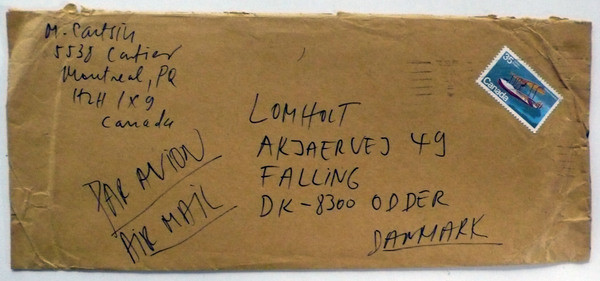 5538 Cartier
Montreal, PQ
H2H 1X9
Canada
PAR AVION
AIR MAIL
LOMHOLT
AKJAERVEJ 49
FALLING
DK-8300 ODDER
DANMARK
35
Canada